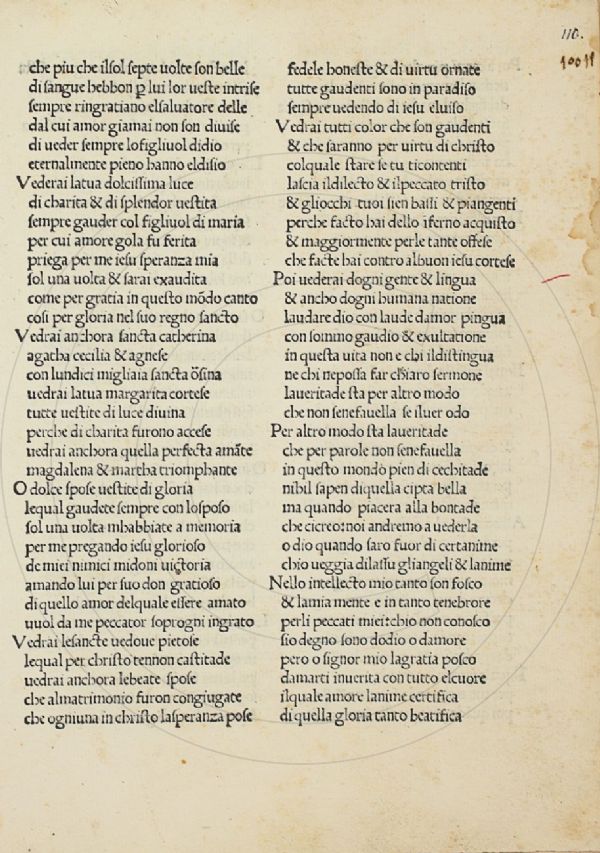 110.
che piu che ilsol septe uolte son belle
di sangue hebbon ꝑ lui lor ueste intrise
sempre ringratiano elsaluatore delle
dal cui amor giamai non son diuise
di ueder sempre lofigliuol didio
eternalmente pieno hanno eldisio
Vederai latua dolcissima luce
di charita & di splendor uestita
sempre gauder col figliuol di maria
per cui amore gola fu ferita
priega per me iesu speranza mia
sol una uolta & sarai exaudita
come per gratia in questo mōdo canto
cosi per gloria nel suo regno sancto
Vedrai anchora sancta catherina
agatha cecilia & agnese
con lundici migliaia sancta ōsina
uedrai latua margarita cortese
tutte uestite di luce diuina
perche di charita furono accese
uedrai anchora quella perfecta amāte
magdalena & martha triomphante
O dolce spose uestite di gloria
lequal gaudete sempre con losposo
sol una uolta mhabbiate a memoria
per me pregando iesu glorioso
de miei nimici midoni uictoria
amando lui per suo don gratioso
di quello amor delquale essere amato
uuol da me peccator soprogni ingrato
Vedrai lesancte uedoue pietose
lequal per christo tennon castitade
uedrai anchora lebeate spose
che almatrimonio furon congiugate
che ogniuna in christo lasperanza pose
fedele honeste & di uirtu ornate
tutte gaudenti sono in paradiso
sempre uedendo di iesu eluiso
Vedrai tutti color che son gaudenti
& che saranno per uirtu di christo
colquale stare se tu ticontenti
lascia ildilecto & ilpeccato tristo
& gliocchi tuoi sien bassi & piangenti
perche facto hai dello iferno acquisto
& maggiormente perle tante offese
che facte hai contro albuon iesu cortese
Poi uederai dogni gente & lingua
& ancho dogni humana natione
laudare dio con laude damor pingua
con sommo gaudio & exultatione
in questa uita non e chi ildistingua
ne chi nepossa far chiaro sermone
laueritade sta per altro modo
che non senefauella se iluer odo
Per altro modo sta laueritade
che per parole non senefauella
in questo mondo pien di cechitade
nihil sapen diquella cipta bella
ma quando piacera alla bontade
che cicreo:noi andremo a uederla
o dio quando saro fuor di certanime
chio ueggia dilassu gliangeli & lanime
Nello intellecto mio tanto son fosco
& lamia mente e in tanto tenebrore
perli peccati miei:chio non conosco
sio degno sono dodio o damore
pero o signor mio lagratia posco
damarti inuerita con tutto elcuore
ilquale amore lanime certifica
di quella gloria tanto beatifica